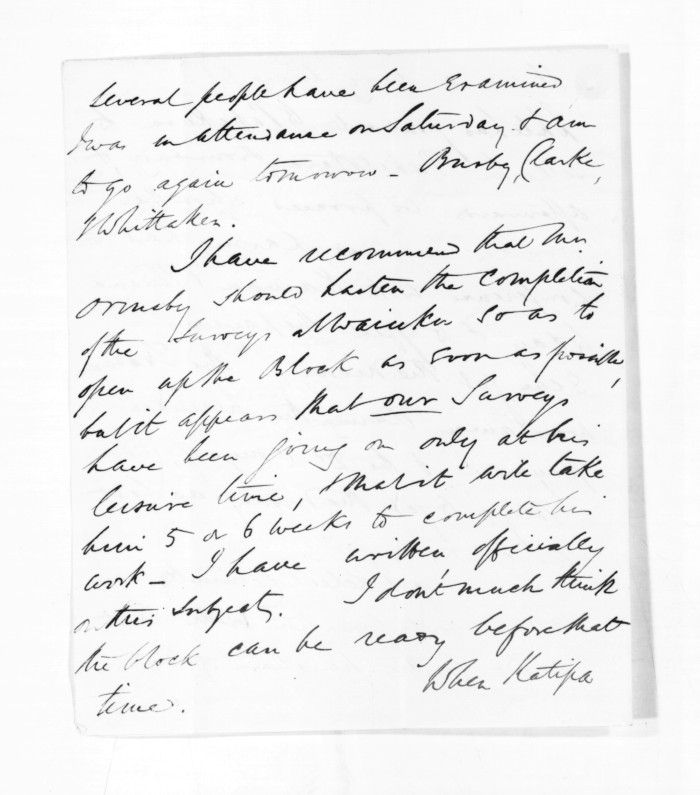 several people have been Examined
I was in attendance on Saturday & am
to go again tomorrow – Busby, Clarke,
Whittaker.
I have recommend that Mr.
Ormsby should hasten the completion
of the Surveys at Waiuku so as to
open up the Block as soon as possible,
but it appears that our Surveys
have been going on only at his
leisure time, & that it will take
him 5 or 6 weeks to complete his
work – I have written officially
on this subject. I don't much think
the block can be ready before that
time. When Katipa